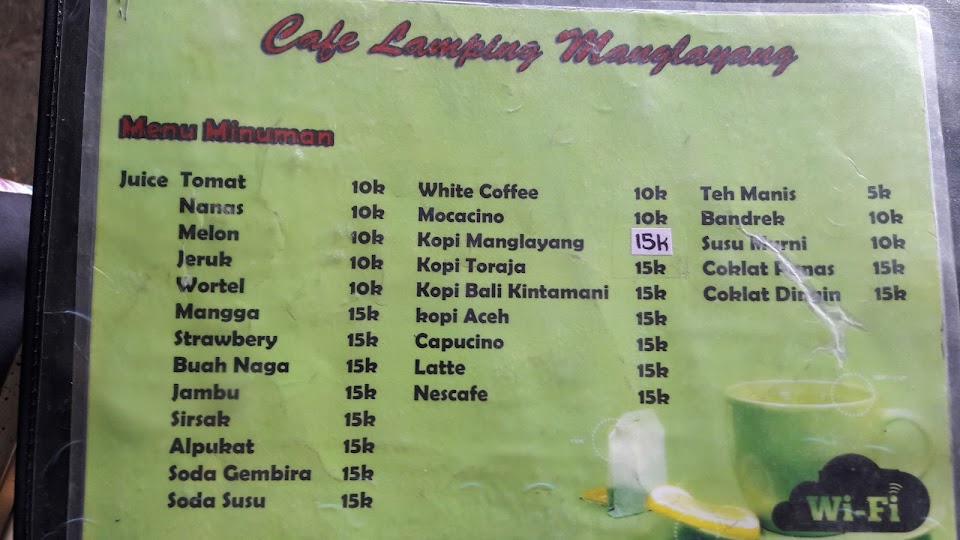 Cafe Lamping Manglayang
Menu Minuman
Juice Tomat 10k
Nanas 10k
Melon 10k
Jeruk 10k
Wortel 10k
Mangga 15k
Strawbery 15k
Buah Naga 15k
Jambu 15k
Sirsak 15k
Alpukat 15k
Soda Gembira 15k
Soda Susu 15k
White Coffee 10k
Mocacino 10k
Kopi Manglayang 15k
Kopi Toraja 15k
Kopi Bali Kintamani 15k
kopi Aceh 15k
Capucino 15k
Latte 15k
Nescafe 15k
Teh Manis 5k
Bandrek 10k
Susu Murni 10k
Coklat Panas 15k
Coklat Dingin 15k
Wi-Fi